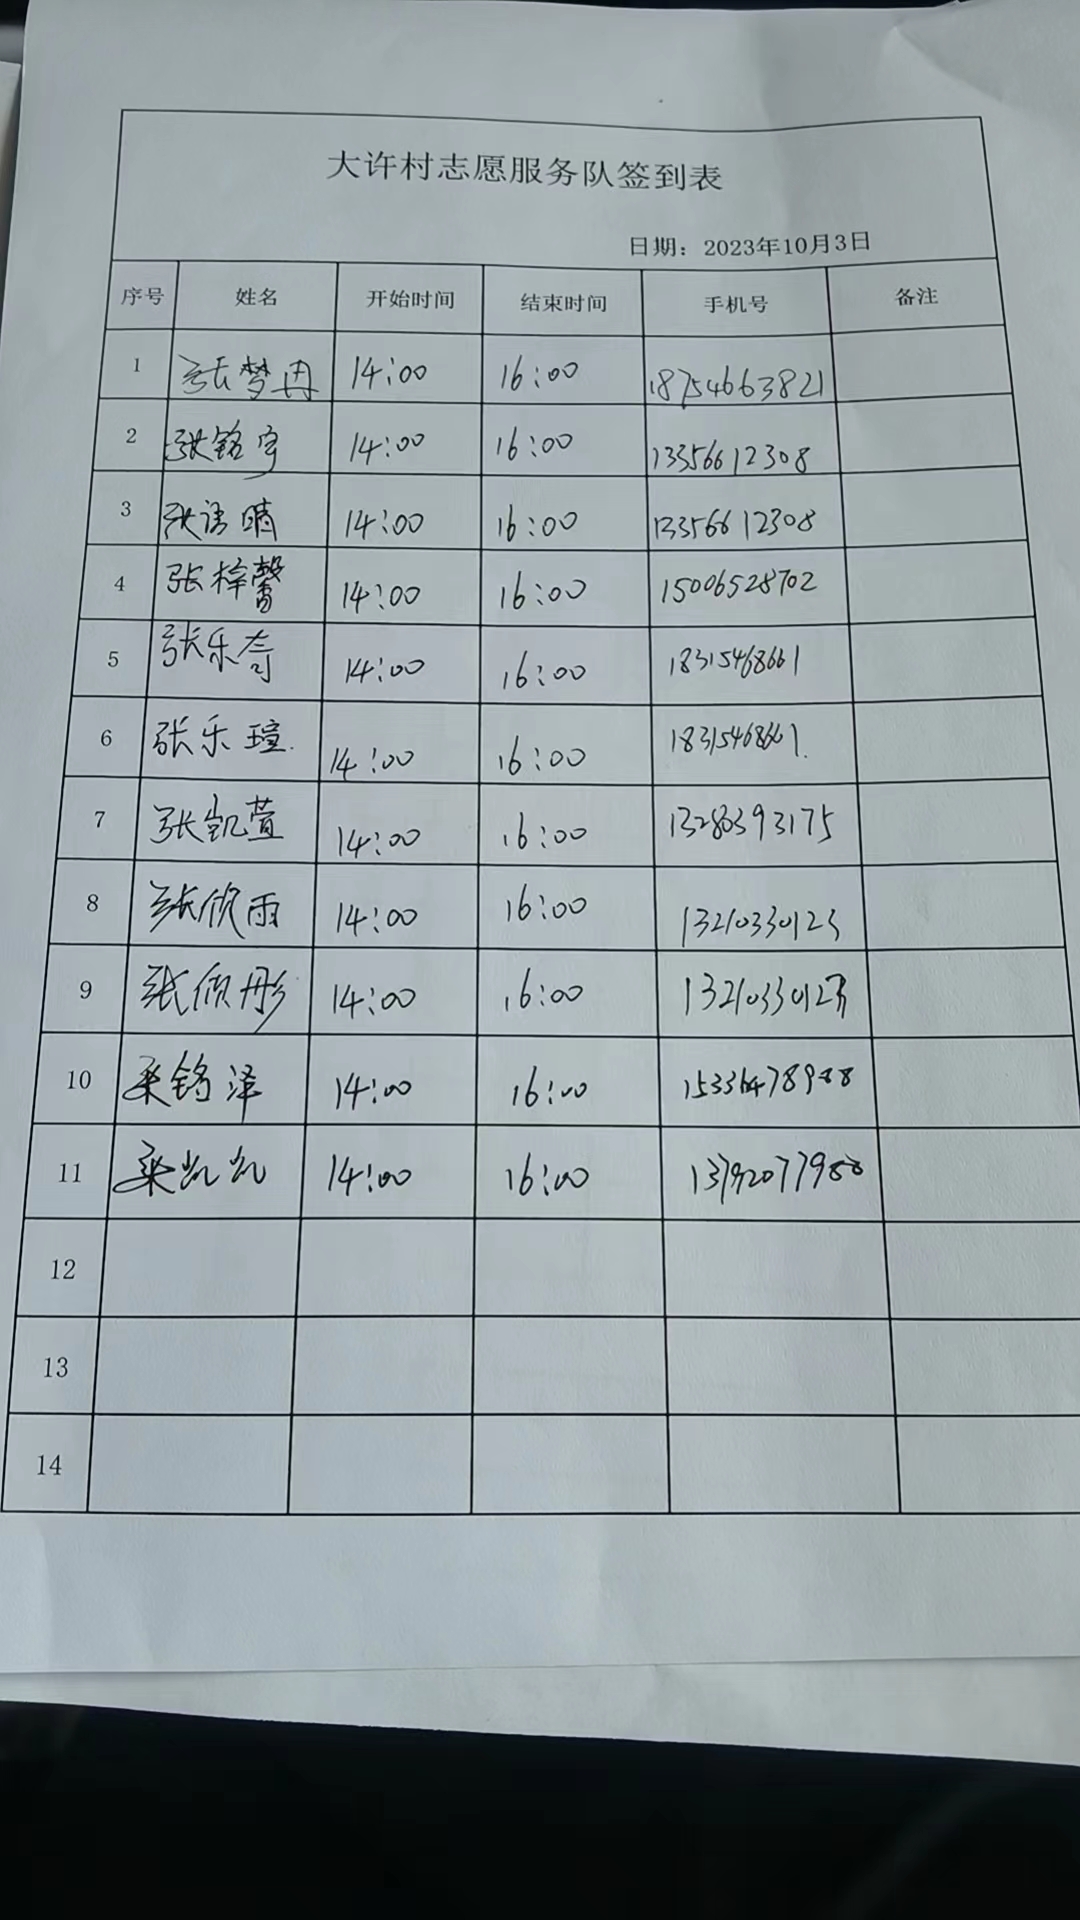 大许村志愿服务队签到表
日期：2023年10月3日
序号 姓名 开始时间 结束时间 手机号 备注
1 张梦冉 14:00 16:00 18754663821
2 张铭宇 14:00 16:00 13356612308
3 张语晴 14:00 16:00 13356612308
4 张梓馨 14:00 16:00 15006528702
5 张乐 14:00 16:00 18315468661
6 张乐瑄. 14:00 16:00 18315468661.
7 张凯萱 14:00 16:00 13280393175
8 张欣雨 14:00 16:00 13210330123
9 张欣彤 14:00 16:00 13210330123
10 铭泽 14:00 16:00 15336478988
11 凯凯 14:00 16:00 13792077988
12
13
14